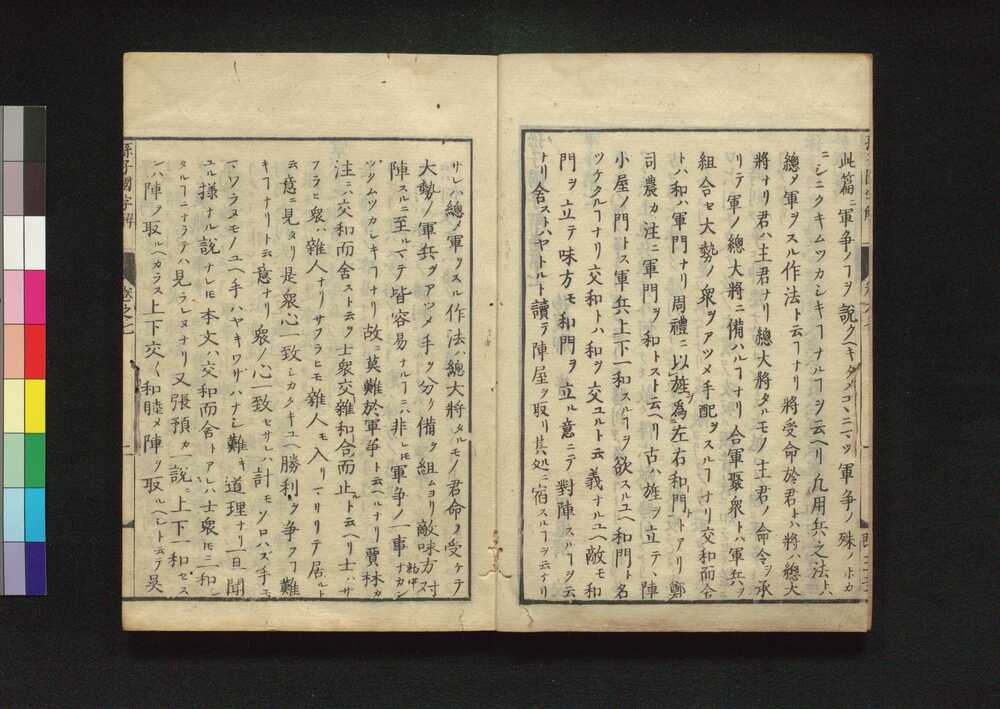 此篇ニ軍争ノヿヲ説クヘキタメコヽニマツ軍争ノ殊ノホカ
ニシニクキムツカシキヿナルヿヲ云ヘリ凡用兵之法トハ
總〆軍ヲスル作法ト云ヿナリ將受命於君トハ將ハ總大
將ナリ君ハ主君ナリ總大將タルモノ主君ノ命令ヲ承
リテ軍ノ總大將ニ備ハルヿナリ合軍聚衆トハ軍兵ヲ
組合セ大勢ノ衆ヲアツメ手配ヲスルヿナリ交和而舎
トハ和ハ軍門ナリ周禮ニ以旌為左右和門トアリ鄭
司農カ注ニ軍門ヲ和トスト云ヘリ古ハ旌ヲ立テヽ陣
小屋ノ門トス軍兵上下一和スルヿヲ欲スルユヘ和門ト名
ツケタルヿナリ交和トハ和ヲ交ユルト云義ナルユヘ敵モ和
門ヲ立テ味方モ和門ヲ立ル意ニテ對陣スルヿヲ云
ナリ舎ストハヤトルト讀テ陣屋ヲ取リ其処ニ宿スルヿヲ云ナリ
サレハ總〆軍ヲスル作法ハ總大將タルモノ君命ヲ受ケテ
大勢ノ軍兵ヲアツメ手ヲ分リ備ヲ組ムヨリ敵味方對
陣スルニ至ルマテ皆容易ナルヿニハ非レ𪜈軍争ノ一事ナカンツク
ムツカシキヿナリ故ニ莫難於軍争ト云ヘルナリ賈林カ
注ニハ交和而舎ストハ士衆交雜和合而止ルト云ヘリ士ハサ
フラヒ衆ハ雜人ナリサフラヒモ雜人モ入リマシリテ居ルト
云意ニ見タリ是衆心一致シカタキユヘ勝利ヲ争フヿ難
キヿナリト云意ナリ衆ノ心一致セサレハ計モソロハズ手モ
マワラヌモノユヘ手ハヤキワザハナシ難キ道理ナリ一旦聞
ユル様ナル説ナレ𪜈本文ハ交和而舎トアレハ士衆𪜈ニ和シ
タルヿニナラテハ見ラレヌナリ又張預カ一説ニ上下一和セス
ンハ陣ヲ取ルヘカラス上下交〱和睦〆陣ヲ取ルヘシト云テ吴
孫子國字解
卷之七